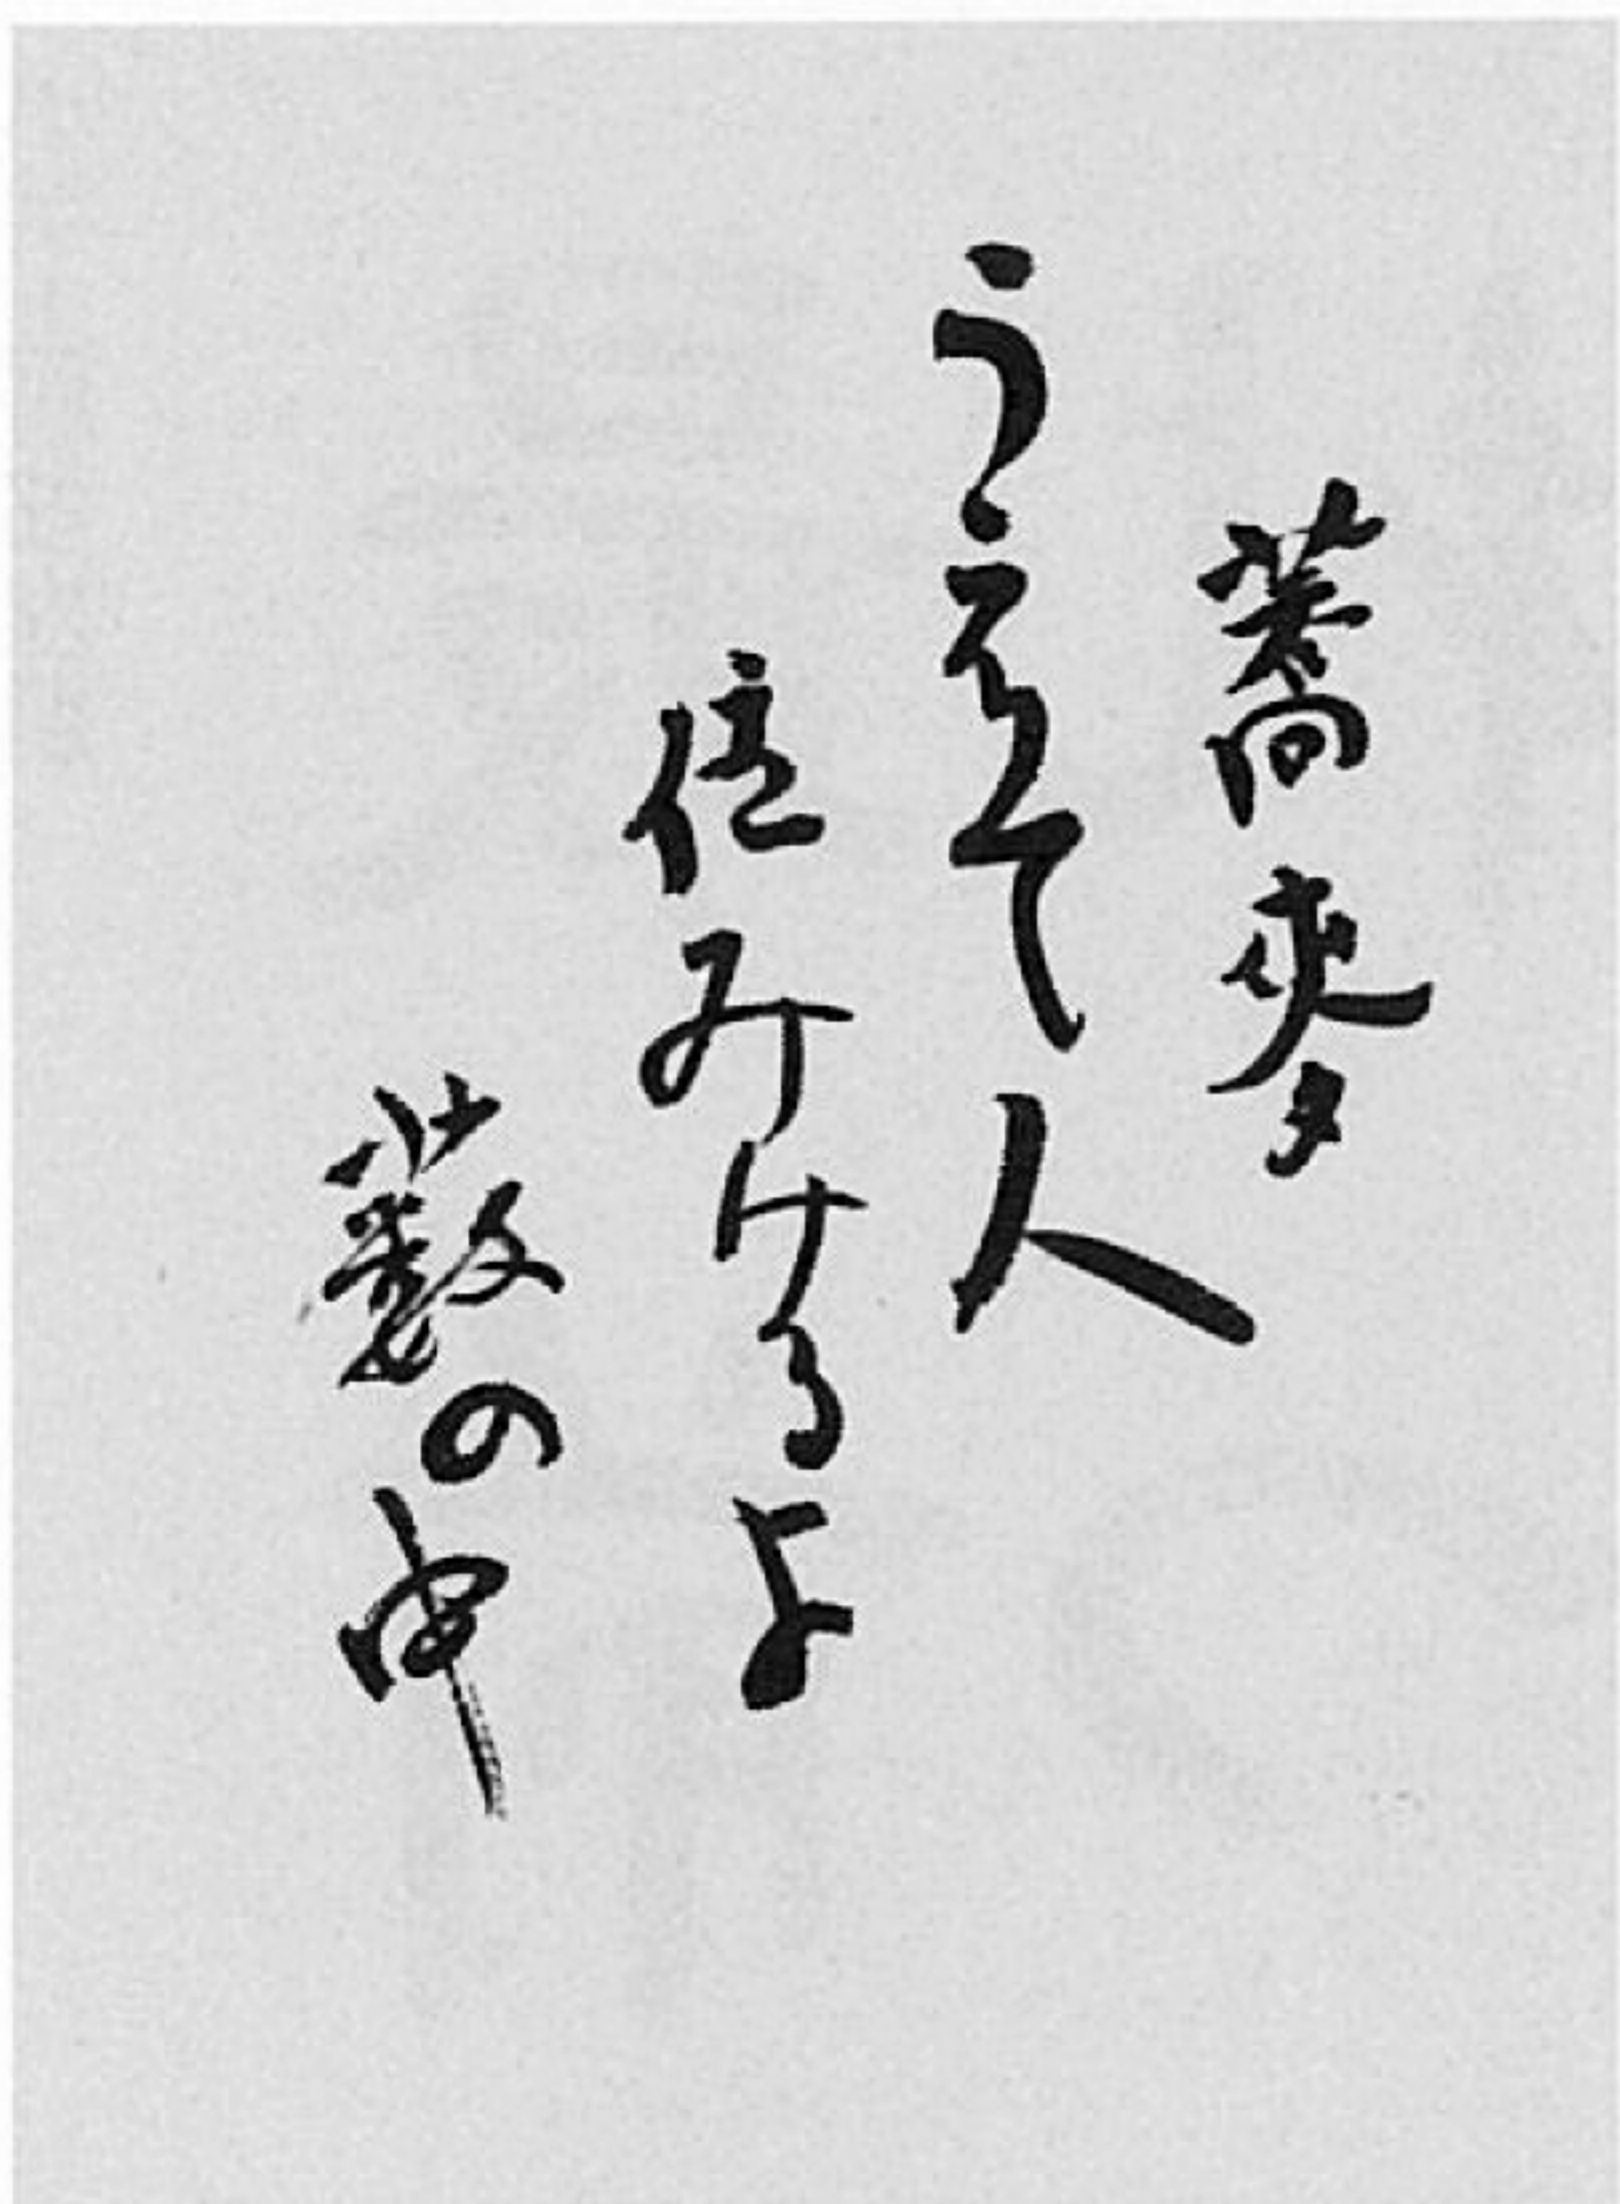 蕎麥
うゑて人
住みけるよ
藪の中